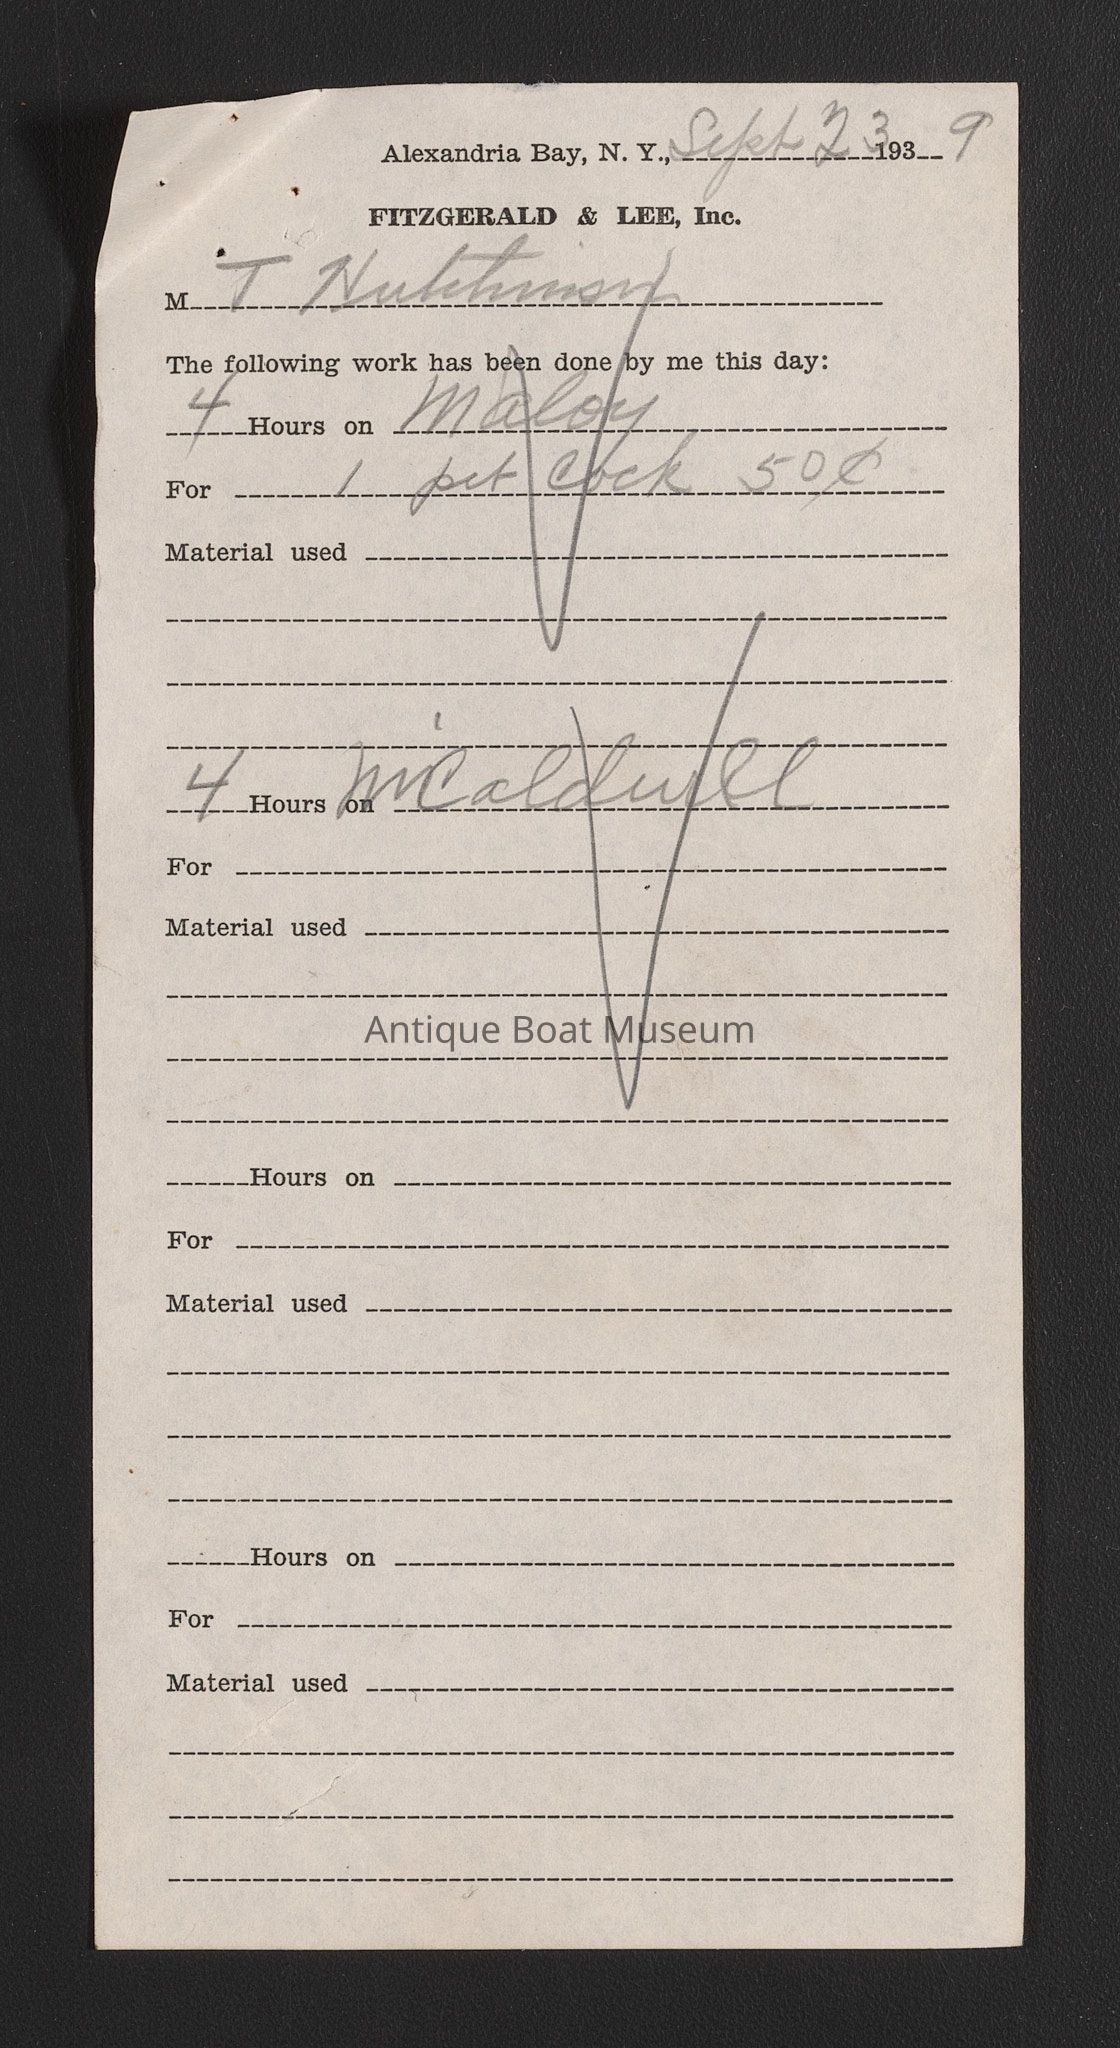 Alexandria Bay, N. Y., Sept 23 193 9
FITZGERALD & LEE, Inc.
M T Hutchinson
The following work has been done by me this day:
4 Hours on Maloy
For 1 pet Cock 50¢
Material used
4 Hours on McCaldwell
For
Material used
Antique Boat Museum
Hours on
For
Material used
Hours on
For
Material used